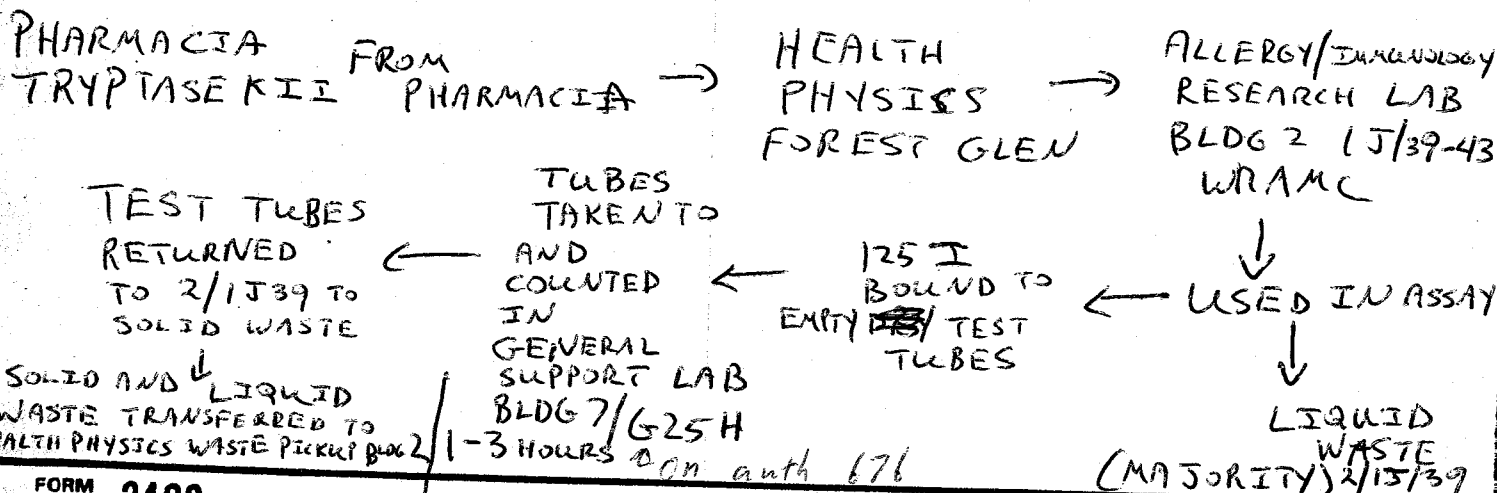 PHARMACIA
TRYPTASE KII FROM
PHARMACIA →
HEALTH
PHYSICS
FOREST GLEN →
ALLERGY/IMMUNOLOGY
RESEARCH LAB
BLDG 2 1J/39-43
WRAMC
↓
USED IN ASSAY
←
125 I
BOUND TO
EMPTY TEST
TUBES
←
TUBES
TAKEN TO
AND
COUNTED
IN
GENERAL
SUPPORT LAB
BLDG 7/G25H
1-3 HOURS
On auth 676
←
TEST TUBES
RETURNED
TO 2/1J39 TO
SOLID WASTE
↓
SOLID AND LIQUID
WASTE TRANSFERRED TO
EALTH PHYSICS WASTE PICKUP BLDG 2
↓
LIQUID
WASTE
(MAJORITY) 2/1J/39
FORM